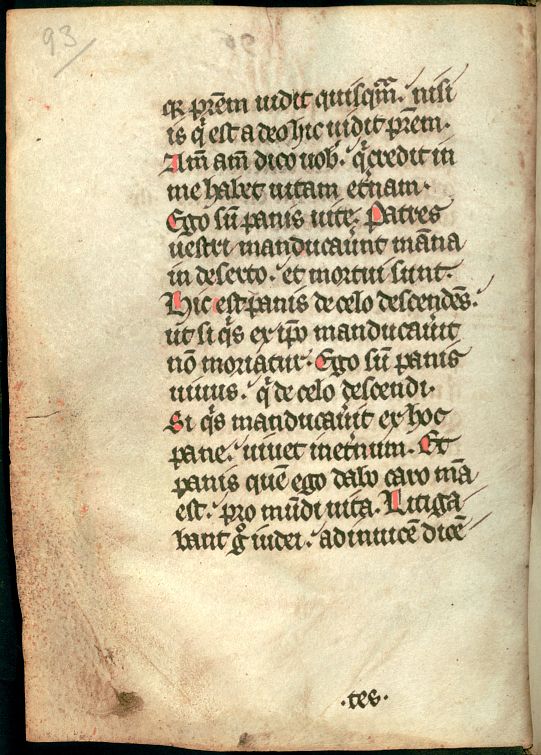 93
qr prēm uidit quisq̄m. nisi
is q̇ est a deo hic uidit prēm.
Am̄ am̄ dico uob. q̇ credit in
me habet uitam et̄nam.
Ego sū panis uite. Patres
uestri manducauȳnt mān̄a
in deserto. et mortui sunt.
Hic est panis de celo descendēs.
ut si q̇s ex ip̄o manducau̇it
nō moriatur. Ego sū panis
uiuus. q̇ de celo descendi.
Si q̇s manducau̇it ex hoc
pane. uiuet inet̄num. Et
panis quē ego dabo caro mā
est. pro mūdi uita. Litiga
bant g̊ iudei. adinuicē dicē
.tes.